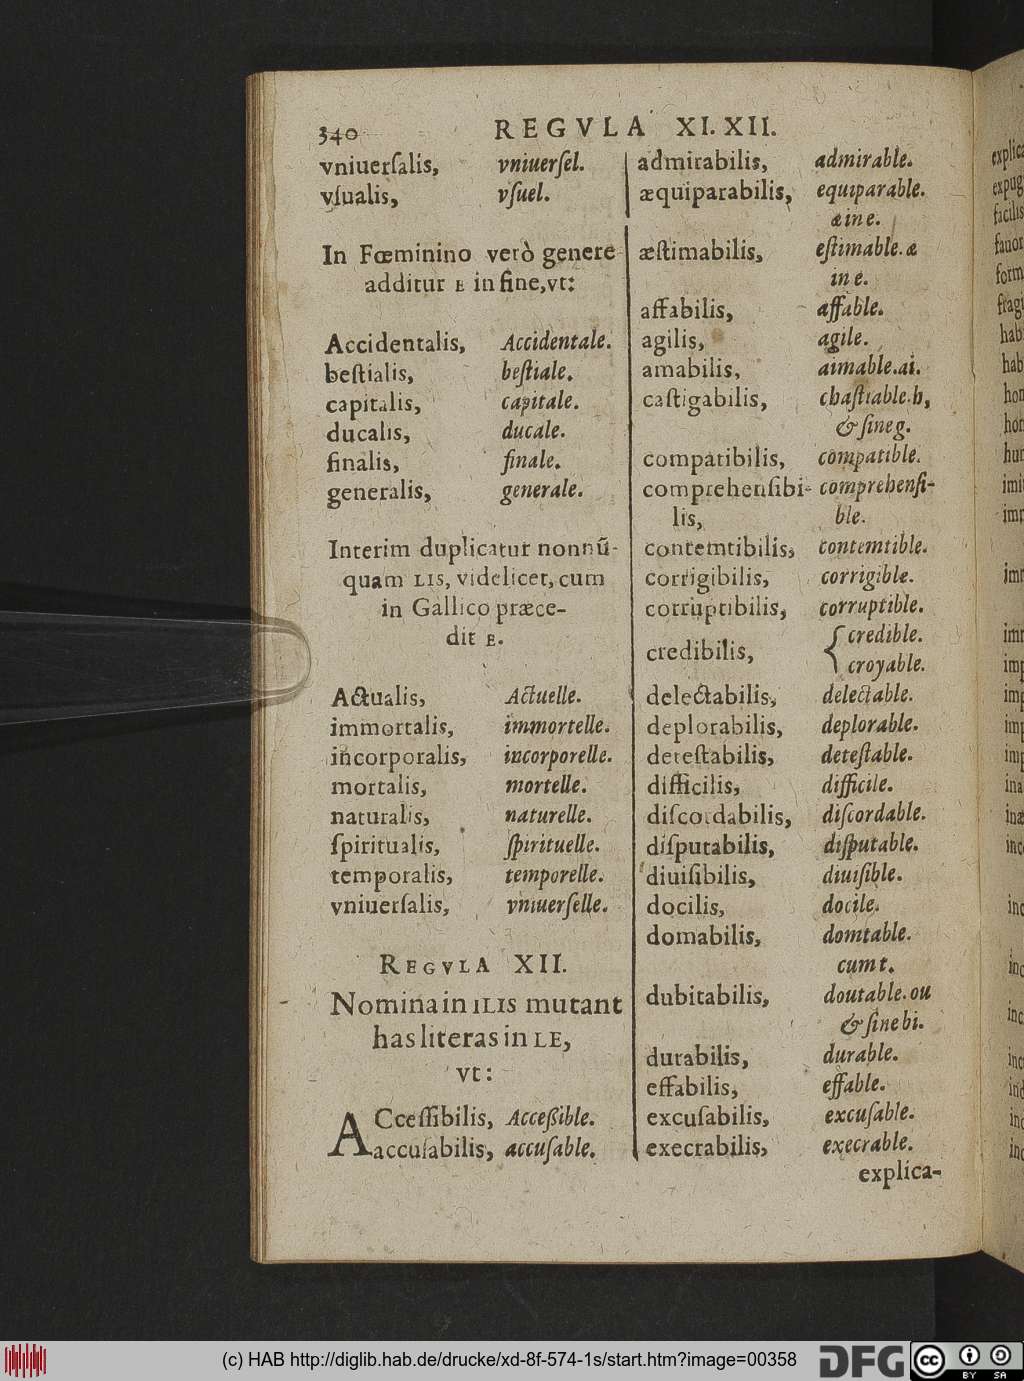 340 REGVLA XI. XII.
vniuerſalis, vniuerſel.
vſualis, vſuel.
In Fœminino verò genere
additur E in fine, vt:
Accidentalis, Accidentale.
beſtialis, beſtiale.
capitalis, capitale.
ducalis, ducale.
finalis, finale.
generalis, generale.
Interim duplicatur nonnũ-
quam LIS, videlicet, cum
in Gallico præce-
dit E.
Actualis, Actuelle.
immortalis, immortelle.
incorporalis, incorporelle.
mortalis, mortelle.
naturalis, naturelle.
ſpiritualis, ſpirituelle.
temporalis, temporelle.
vniuerſalis, vniuerſelle.
REGVLA XII.
Nomina in ILIS mutant
has literas in LE,
vt:
ACceſſibilis, Acceßible.
accuſabilis, accuſable.
admirabilis, admirable.
æquiparabilis, equiparable.
æ in e.
æſtimabilis, eſtimable. æ
in e.
affabilis, affable.
agilis, agile.
amabilis, aimable. ai.
caſtigabilis, chaſtiable. h,
& ſine g.
compatibilis, compatible.
comprehenſibi- comprehenſi-
lis, ble.
contemtibilis, contemtible.
corrigibilis, corrigible.
corruptibilis, corruptible.
credibilis, { credible.
croyable.
delectabilis, delectable.
deplorabilis, deplorable.
deteſtabilis, deteſtable.
difficilis, difficile.
diſcordabilis, diſcordable.
diſputabilis, diſputable.
diuiſibilis, diuiſible.
docilis, docile.
domabilis, domtable.
cum t.
dubitabilis, doutable. ou
& ſine bi.
durabilis, durable.
effabilis, effable.
excuſabilis, excuſable.
execrabilis, execrable.
explica-
(c) HAB http://diglib.hab.de/drucke/xd-8f-574-1s/start.htm?image=00358
DFG
cc BY SA